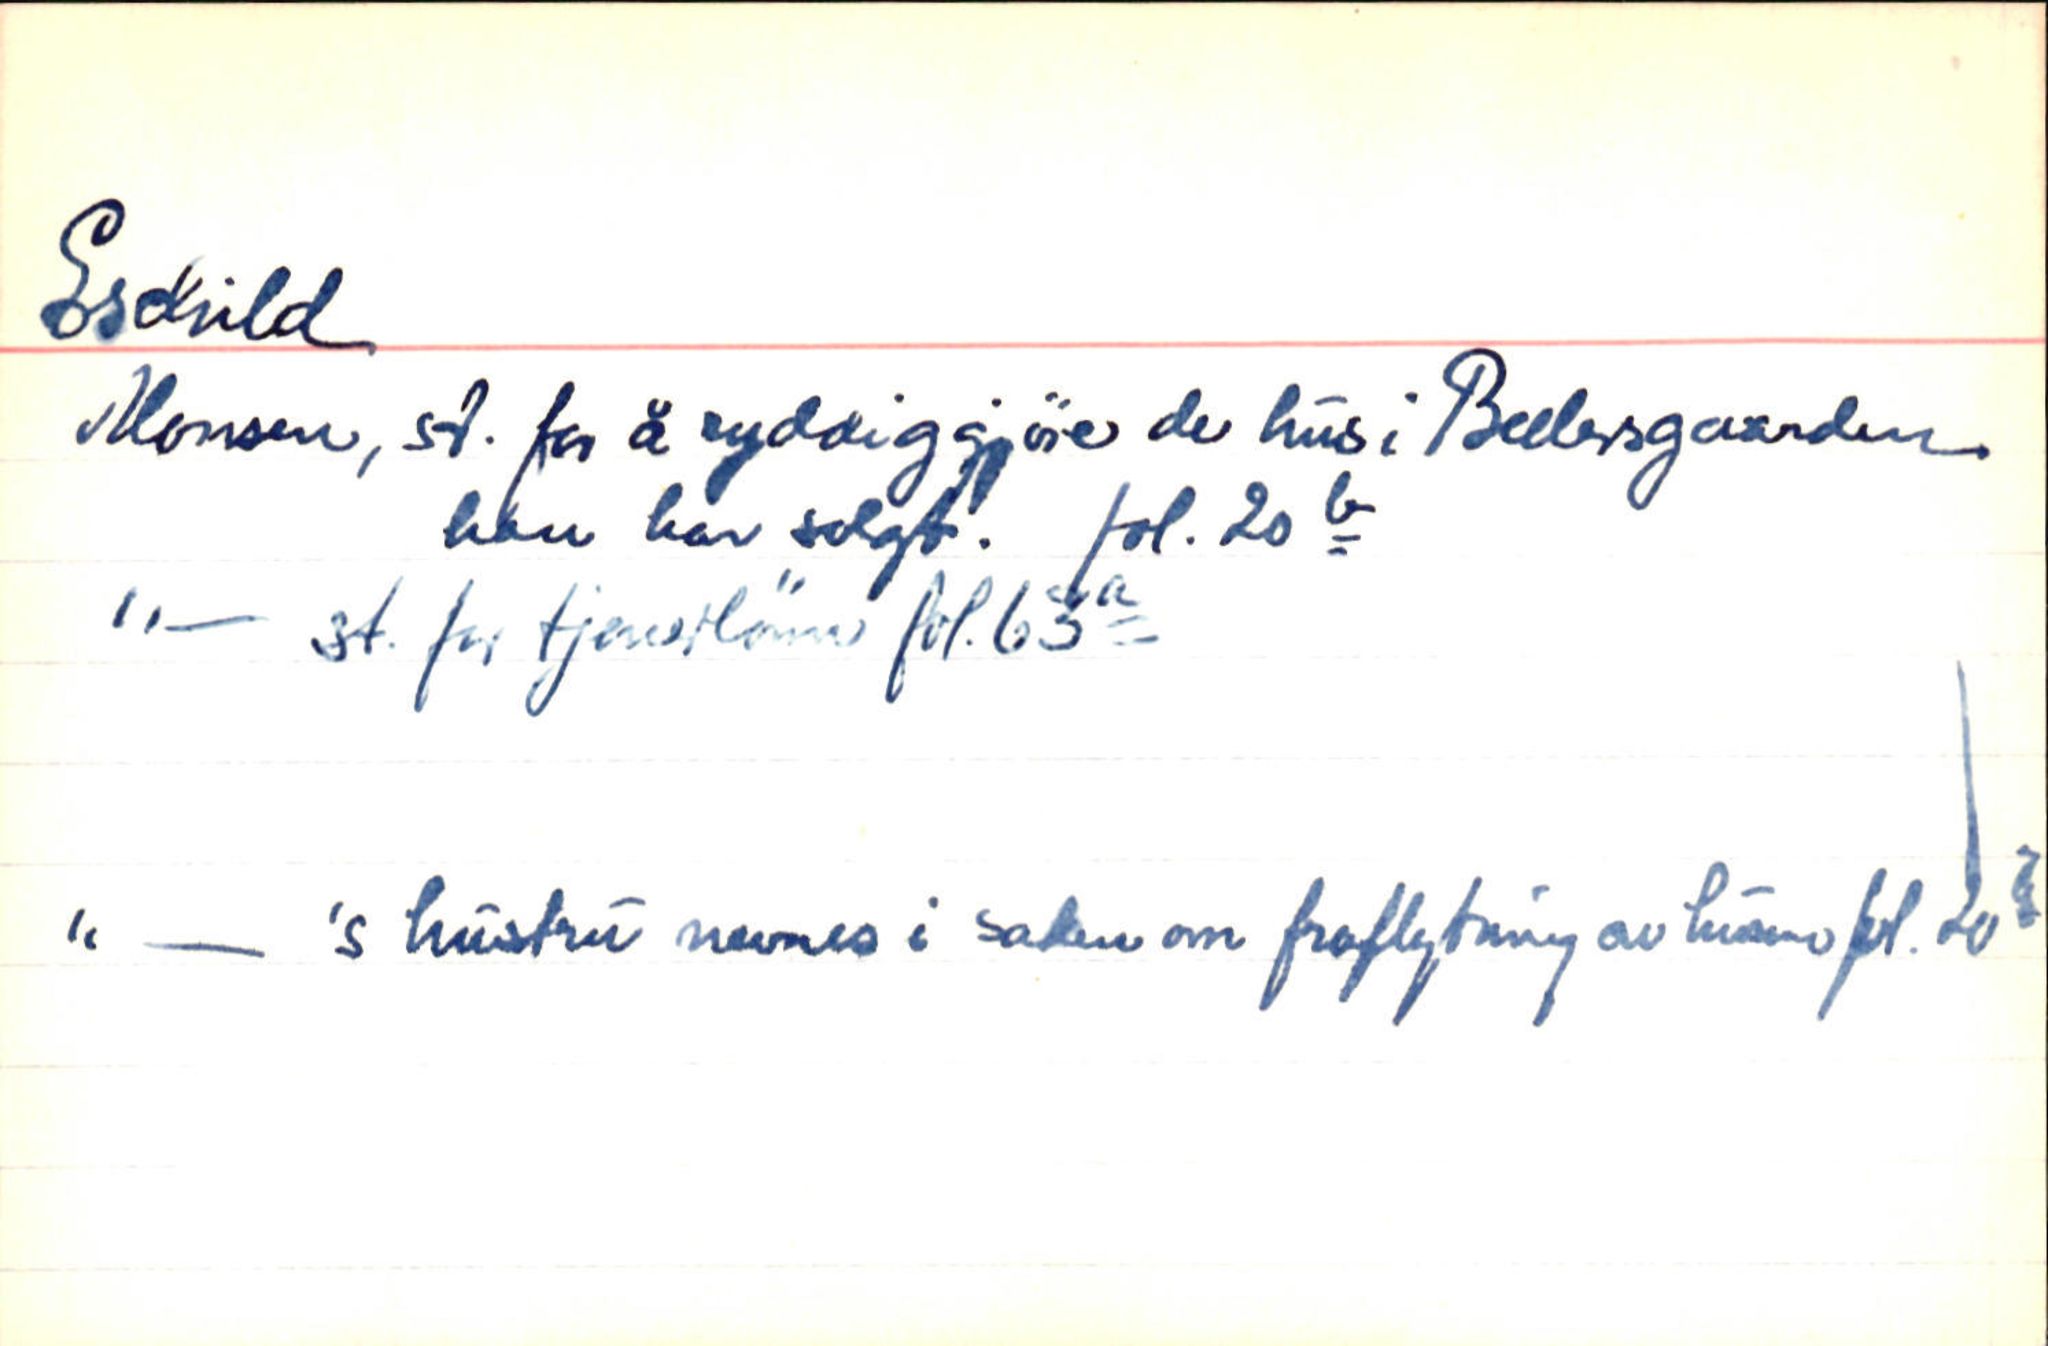 Esckild
Monsen, st. for å ryddiggjöre de hus i Beelersgaarden
han har solgt. fol. 20 b
"— st. for tjenerlönn fol. 63 a
" — 's hustru nevnes i saken om fraflytning av husene fol. 20 b